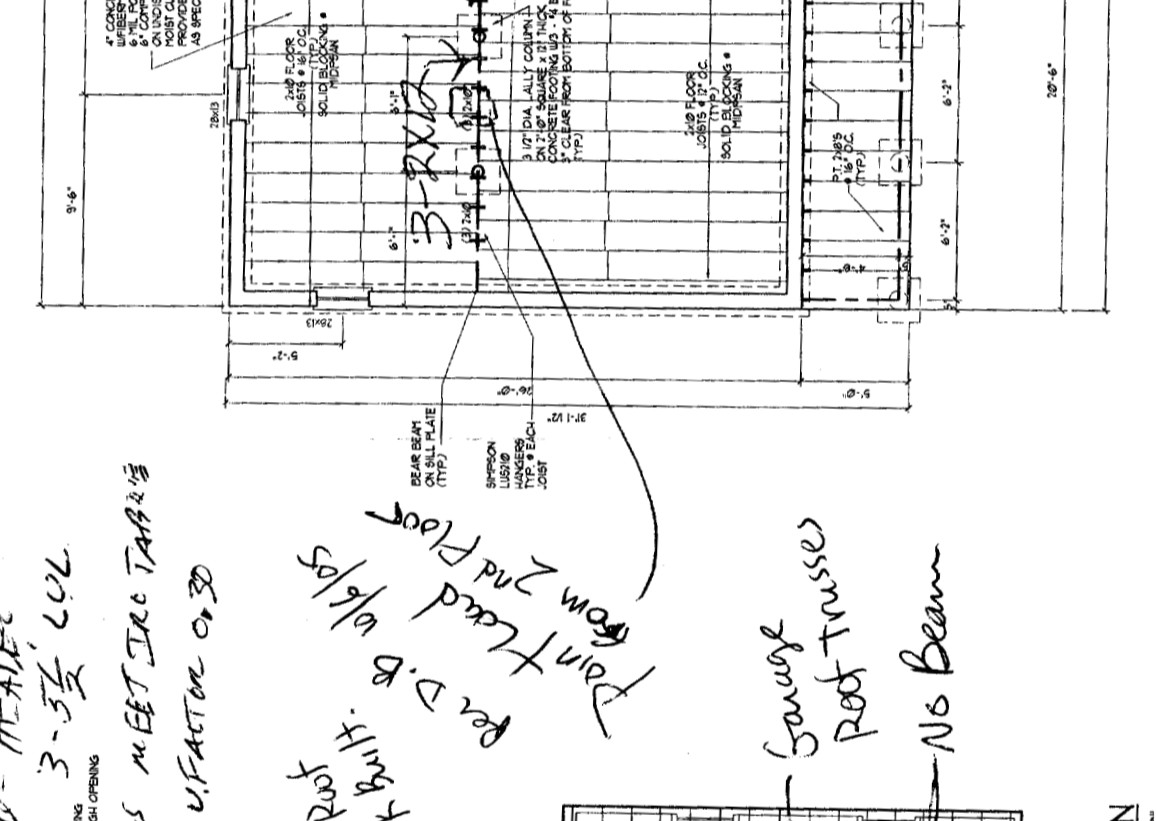 4" CONC
6 MIL PO
6" COMP
ON UNDIS
MOIST CL
PROVIDE
AS SPEC
2x10 FLOOR
JOISTS @ 16" O.C.
(TYP.)
SOLID BLOCKING @
MIDSPAN
28x13
9'-6"
6'-1"
6'-1"
3-2X10
(3) 2x10
(3) 2x10
3 1/2" DIA. ALLY COLUMN
ON 2'-0" SQUARE x 12" THICK
CONCRETE FOOTING W/3 - #4 B
3" CLEAR FROM BOTTOM OF F
TYP.)
2x10 FLOOR
JOISTS @ 12" O.C.
(TYP.)
SOLID BLOCKING @
MIDSPAN
P.T. 2x8'S
@ 16" O.C.
(TYP.)
6'-2"
6'-2"
20'-6"
4'-6"
28x13
5'-2"
26'-0"
5'-0"
31'-1 1/2"
BEAR BEAM
ON SILL PLATE
(TYP.)
SIMPSON
LUS210
HANGERS
TYP. @ EACH
JOIST
Point Load
from 2nd Floor
Per D.B. 6/6/05
3-3 1/2 LVL
NG
GH OPENING
MEET IRC TABLE
U.FACTOR 0.30
Roof
Built.
Garage
Roof Trusses
No Beam
N